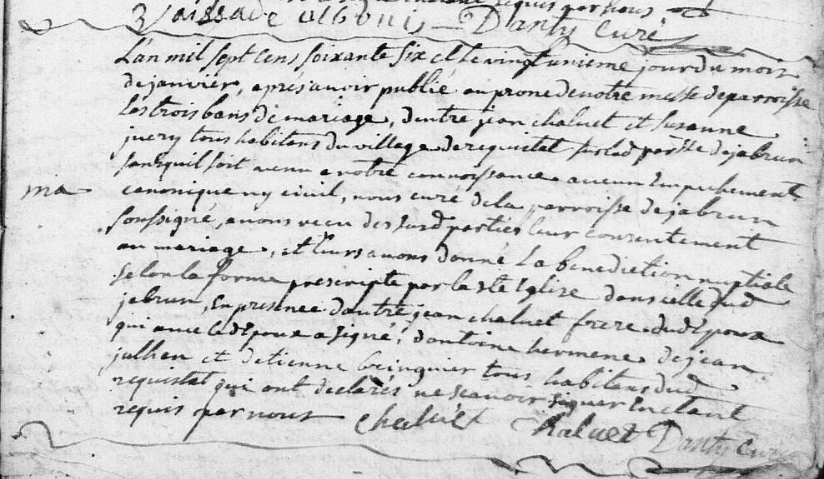 requis par nous
Vaissade albouis Danty Curé
L'an mil sept cens soixante six et le vingtunieme jour du mois
de janvier, apres avoir publié au prone de notre messe de parroisse
les trois bans de mariage, d'entre jean chaluet et suzanne
juery tous habitans du village de requistat sur lad. parsse de jabrun
sans quil soit venu a notre connoissance aucun Empechement
ma canonique ny civil, nous curé de la parroisse de jabrun
soussigné, avons recu desd. parties leur consentement
au mariage, et leurs avons donné La benediction nuptiale
selon la forme prescripte par la ste Eglise dans icelle dud.
jabrun, En presence d'autre jean chaluet frere dud. Epoux
qui avec led. Epoux a signé, d'antoine hermene de jean
julhen et d'etienne bringuier tous habitans dud.
requistat qui ont declarés ne scavoir signer En etant
requis par nous chaluet Chaluet Danty Curé